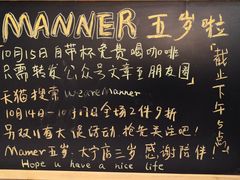 MANNER 五岁啦
10月15日自带杯免费喝咖啡
只需转发公众号文章至朋友圈
天猫搜索 wearemanner
10月14日-10月17日全场2件9折
另双11有大促活动 抢先关注吧!
Manner五岁、大宁店三岁 感谢陪伴!
Hope u have a nice life
截止下午5点